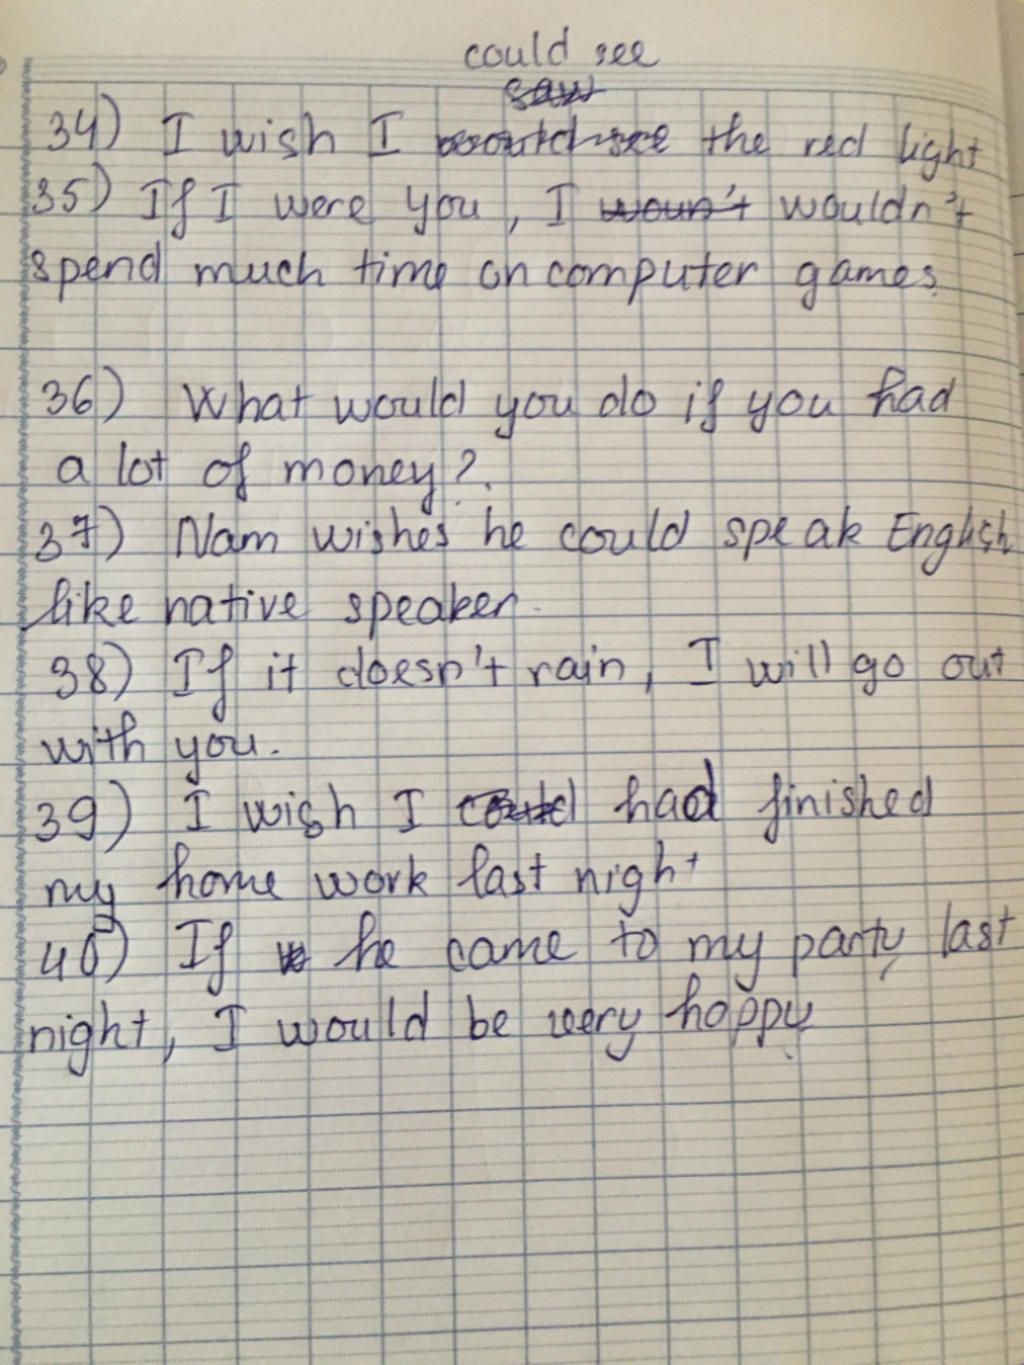 could see
saw
34) I wish I the red light
35) If I were you, I woun't wouldn't
spend much time on computer games.
36) What would you do if you had
a lot of money?
37) Nam wishes he could speak English
like native speaker.
38) If it doesn't rain, I will go out
with you.
39) I wish I could had finished
my home work last night
40) If he came to my party last
night, I would be very happy